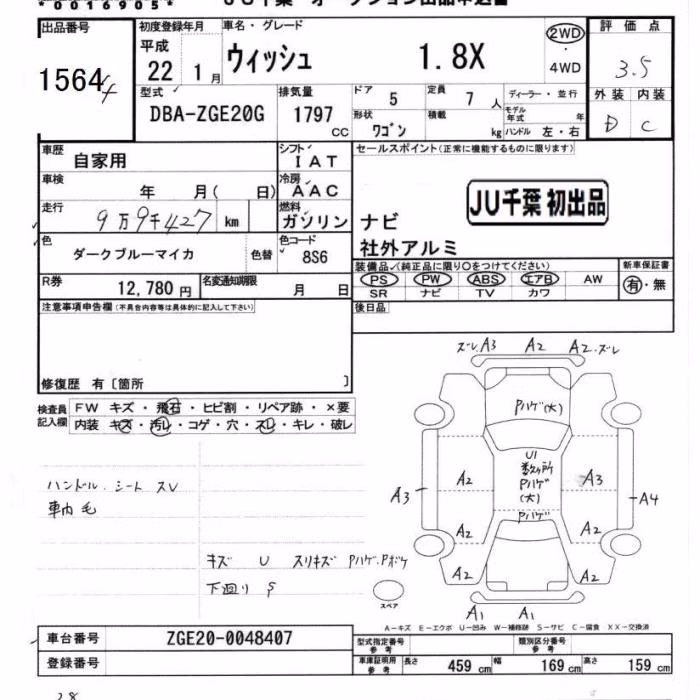 *00016905*
JU千葉 オークション出品申込書
出品番号
15644
初度登録年月
平成
22 1月
車名・グレード
ウィッシュ 1.8X
2WD
・
4WD
評価点
3.5
外装 内装
D C
型式
DBA-ZGE20G
排気量
1797
cc
ドア 5
定員 7人
ディーラー・並行
モデル年式 年
形状 ワゴン
積載 kg
ハンドル 左・右
車歴 自家用
シフト IAT
セールスポイント(正常に機能するものに限ります)
車検 年 月( 日)
冷房 AAC
走行 9万9千427km
燃料 ガソリン
JU千葉 初出品
ナビ
社外アルミ
色 ダークブルーマイカ 色替
色コード 8S6
装備品(純正品に限り○をつけてください)
PS PW ABS エアB AW
SR ナビ TV カワ
新車保証書
有・無
R券 12,780円
名変通知期限 月 日
後日品
注意事項申告欄(不具合内容等は具体的に記入して下さい)
修復歴 有〔箇所 〕
検査員記入欄
FW キズ・飛石・ヒビ割・リペア跡・×要
内装 キズ・汚レ・コゲ・穴・スレ・キレ・破レ
ハンドル.シート スレ
車内 毛
キズ U スリキズ Pハゲ.Pボケ
下廻り S
ズレ.A3 A2 A2.ズレ
Pハゲ(大)
U1
数ヶ所
Pハゲ
(大)
Pハゲ
A2 A3
A3 A4
A2 A2
A2 A2
A1 A1
スペア
A-キズ E-エクボ U-凹み W-補修跡 S-サビ C-腐食 XX-交換済
車台番号 ZGE20-0048407
登録番号
型式指定番号 参考
類別区分番号 参考
車庫証明用 参考
長さ 459cm
幅 169cm
高さ 159cm
28